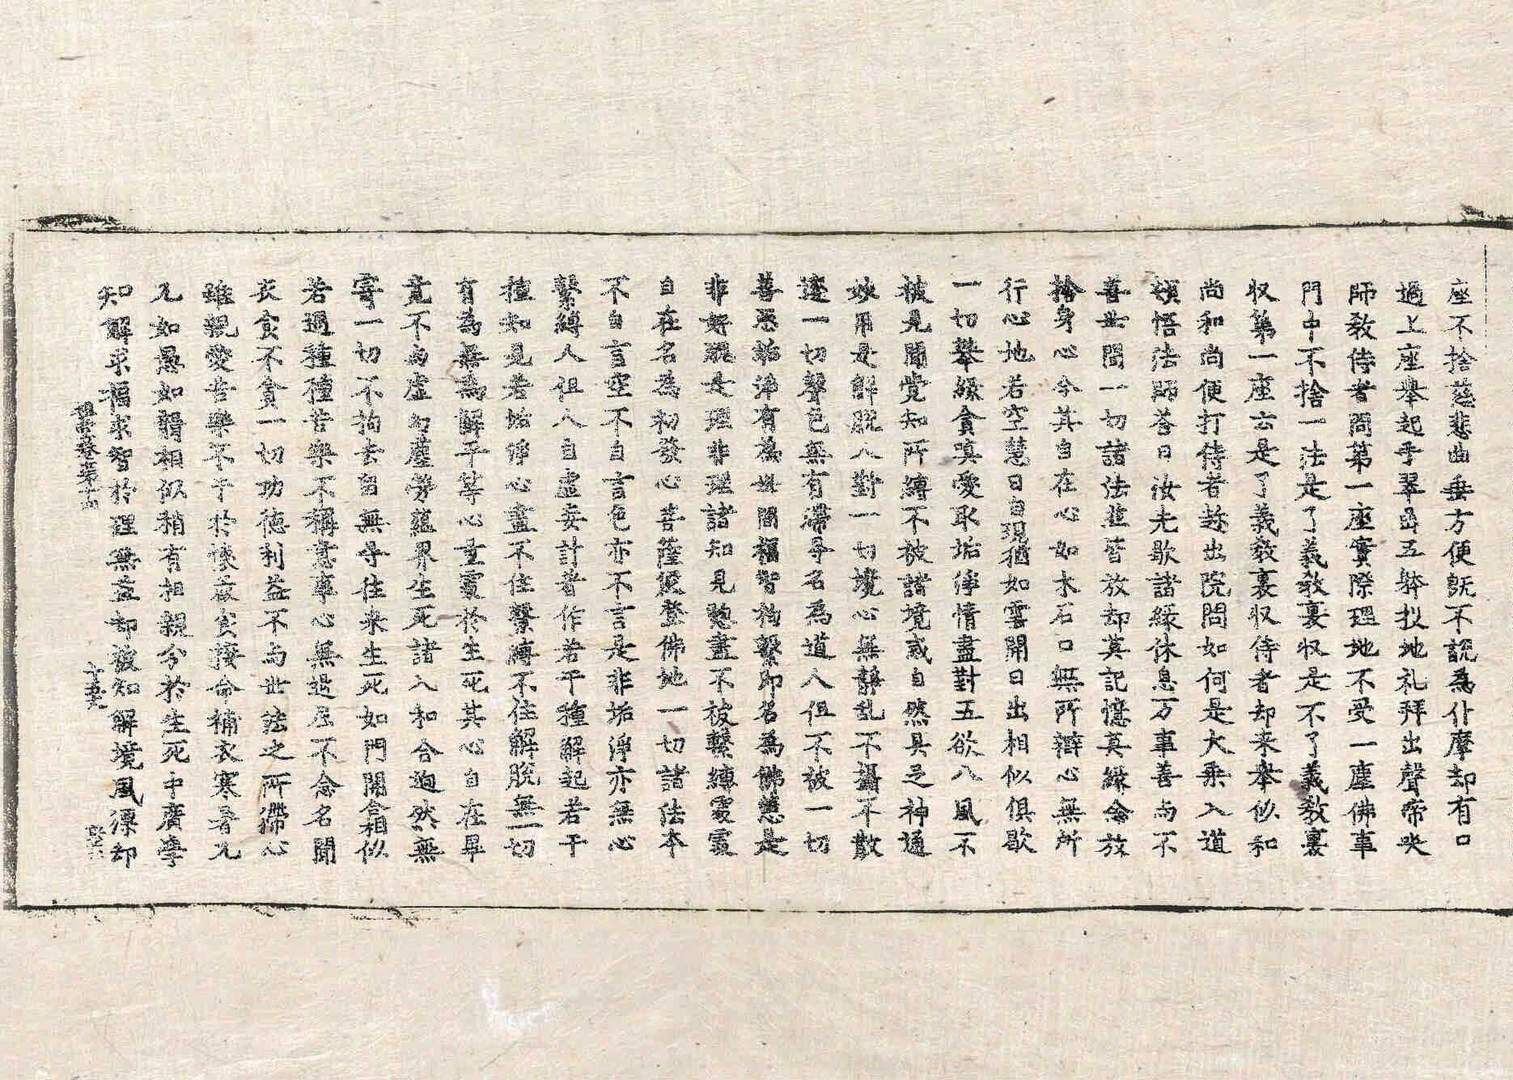 座不捨慈悲曲垂方便旣不說爲什摩却有口
過上座舉起手翠㠯五躰投地礼拜出聲啼哭
師教侍者問第一座實際理地不受一塵佛事
門中不捨一法是了義教裏収是不了義教裏
収第一座云是了義教裏収侍者却来舉似和
尚和尚便打侍者趁出院問如何是大乘入道
頓悟法師荅曰汝先歇諸緣休息万事善而不
善世間一切諸法並皆放却莫記憶莫緣念放
捨身心令其自在心如木石口無所辯心無所
行心地若空慧日自現猶如雲開日出相似俱歇
一切攀緣貪嗔愛取垢淨情盡對五欲八風不
被見聞覺知所縛不被諸境或自然具足神通
妙用是解脫人對一切境心無靜乱不攝不散
透一切聲色無有滯㝵名爲道人但不被一切
善惡垢淨有爲世間福智拘繫即名爲佛慧是
非好醜是理非理諸知見惣盡不被繫縛處處
自在名爲初發心菩薩便登佛地一切諸法本
不自言空不自言色亦不言是非垢淨亦無心
繫縛人但人自虛妄計著作若干種解起若干
種知見若垢淨心盡不住繫縛不住解脫無一切
有爲無爲解平等心量處於生死其心自在畢
竟不与虛幻塵勞蘊界生死諸入和合逈然無
寄一切不拘去留無㝵往来生死如門開合相似
若遇種種苦樂不稱意事心無退屈不念名聞
衣食不貪一切功德利益不与世法之所滯心
雖親愛苦樂不干於懷麁食接命補衣寒暑兀
兀如愚如聾相似稍有相親分於生死中廣學
知解求福求智於理無益却被知解境風漂却
祖堂卷第十四